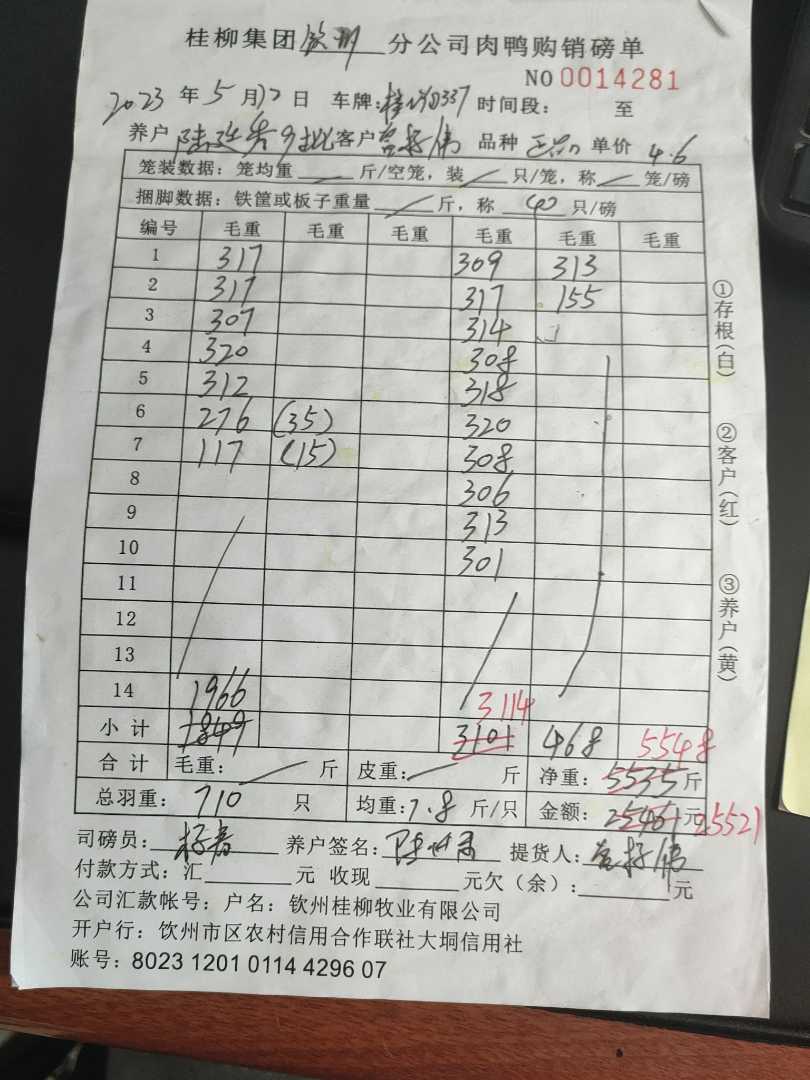 桂柳集团钦州分公司肉鸭购销磅单
NO 0014281
2023年5月12日 车牌:桂 337 时间段: 至
养户 客户 品种 单价 4.6
笼装数据:笼均重 斤/空笼,装 只/笼,称 笼/磅
捆脚数据:铁筐或板子重量 斤,称 40 只/磅
编号 毛重 毛重 毛重 毛重 毛重 毛重
1 317 309 313
2 317 317 155
3 307 314
4 320 308
5 312 318
6 276 (35) 320
7 117 (15) 308
8 306
9 313
10 301
11
12
13
14 1966 3114
小计 1849 3101 468 5548
合计 毛重: 斤 皮重: 斤 净重: 5535 斤
总羽重: 710 只 均重: 7.8 斤/只 金额: 25461 元 25521
司磅员: 养户签名: 提货人:
付款方式:汇 元 收现 元欠(余): 元
公司汇款帐号:户名:钦州桂柳牧业有限公司
开户行:钦州市区农村信用合作联社大垌信用社
账号:8023 1201 0114 4296 07
①存根(白)
②客户(红)
③养户(黄)